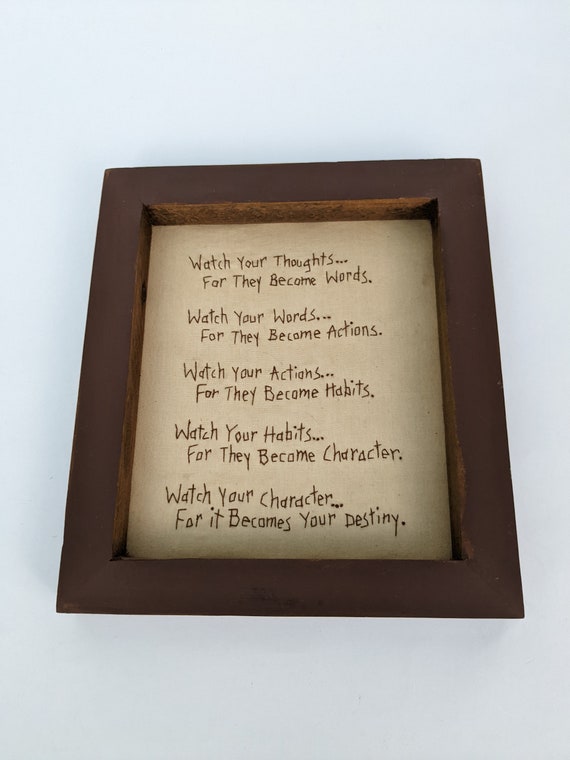 Watch Your Thoughts...
For They Become Words.
Watch Your Words...
For They Become Actions.
Watch Your Actions...
For They Become Habits.
Watch Your Habits...
For They Become Character.
Watch Your Character...
For it Becomes Your Destiny.